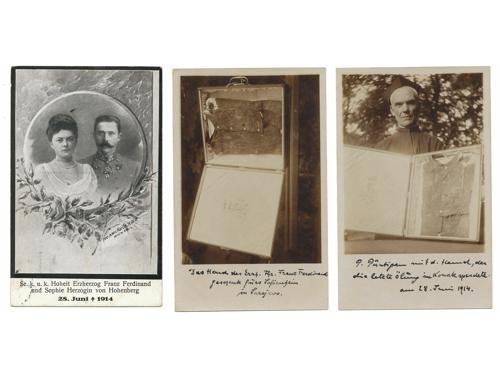 Se. k. u. k. Hoheit Erzherzog Franz Ferdinand
und Sophie Herzogin von Hohenberg
28. Juni † 1914
Das Hemd des Erzh. Franz Ferdinand
in Sarajevo.
P. mit d. Hemd, der
die letzte Ölung im Konak spendete
am 28. Juni 1914.